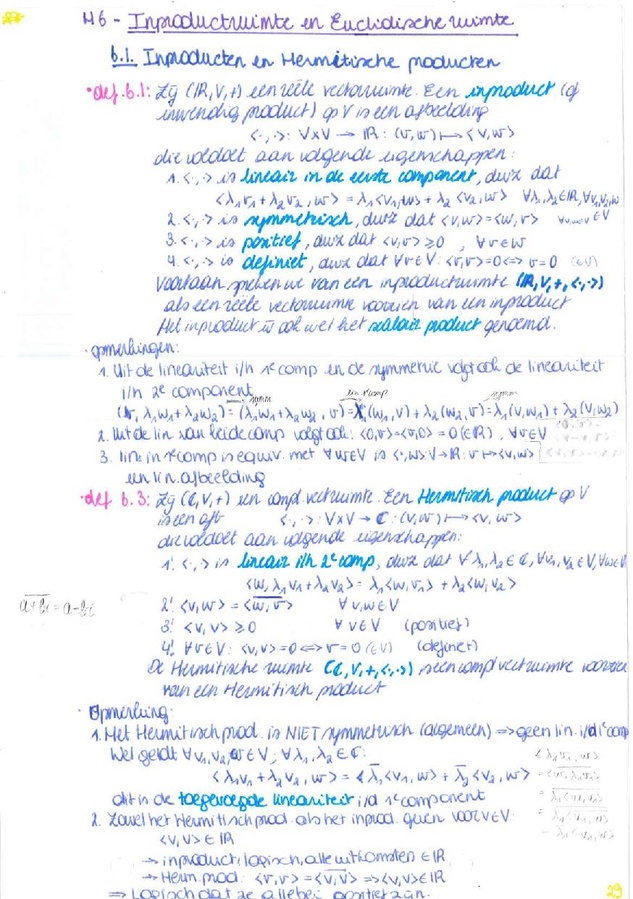 H6 - Inproductruimte en Euclidische ruimte
6.1. Inproducten en Hermitische producten
• def. 6.1: Zij (ℝ,V,+) een reële vectorruimte. Een inproduct (of
inwendig product) op V is een afbeelding
<·,·>: V×V → ℝ: (v,w) ↦ <v,w>
die voldoet aan volgende eigenschappen:
1. <·,·> is lineair in de eerste component, dwz dat
<λ₁v₁+λ₂v₂,w> = λ₁<v₁,w> + λ₂<v₂,w> ∀λ₁,λ₂∈ℝ, ∀v₁,v₂,w
2. <·,·> is symmetrisch, dwz dat <v,w>=<w,v> ∀v,w∈V
3. <·,·> is positief, dwz dat <v,v> ≥0 , ∀v∈W
4. <·,·> is definiet, dwz dat ∀v∈V: <v,v>=0 ⟺ v=0 (∈V)
Voortaan spreken we van een inproductruimte (ℝ,V,+,<·,·>)
als een reële vectorruimte voorzien van een inproduct
Het inproduct w ook wel het scalair product genoemd.
· opmerkingen:
1. Uit de lineariteit i/h 1ᵉ comp en de symmetrie volgt ook de lineariteit
i/h 2ᵉ component
symm 1ᵉ comp symm
(v, λ₁w₁+λ₂w₂) = (λ₁w₁+λ₂w₂, v) = λ₁(w₁,v)+λ₂(w₂,v) = λ₁(v,w₁)+λ₂(v,w₂)
2. Uit de lin van beide comp volgt ook: <0,v>=<v,0> = 0(∈ℝ), ∀v∈V
3. lin. in 1ᵉ comp is equiv. met ∀w∈V is <·,w>: V→ℝ: v↦<v,w>
een lin. afbeelding
• def 6.3: Zij (ℂ,V,+) een compl. vect.ruimte. Een Hermitisch product op V
is een afb <·,·>: V×V → ℂ: (v,w) ↦ <v,w>
die voldoet aan volgende eigenschappen:
1'. <·,·> is lineair i/h 2ᵉ comp, dwz dat ∀λ₁,λ₂∈ℂ, ∀v₁,v₂∈V, ∀w∈V
<w,λ₁v₁+λ₂v₂> = λ₁<w,v₁> + λ₂<w,v₂>
a̅+̅b̅i̅=a-bi
2'. <v,w> = <w̅,̅v̅> ∀v,w∈V
3'. <v,v> ≥0 ∀v∈V (positief)
4'. ∀v∈V: <v,v>=0 ⟺ v=0(∈V) (definiet)
De Hermitische ruimte (ℂ,V,+,<·,·>) is een compl vect ruimte voorzien
van een Hermitisch product
· Opmerking:
1. Het Hermitisch prod. is NIET symmetrisch (algemeen) ⇒ geen lin. i/d 1ᵉ comp
Wel geldt ∀v₁,v₂,w∈V; ∀λ₁,λ₂∈ℂ:
<λ₁v₁+λ₂v₂,w> = λ̅₁<v₁,w> + λ̅₂<v₂,w>
dit is de toegevoegde lineariteit i/d 1ᵉ component
2. Zowel het Hermitisch prod. als het inprod. geven voor v∈V
<v,v> ∈ℝ
→ inproduct: logisch, alle uitkomsten ∈ℝ
→ Herm. prod: <v,v> = <v̅,̅v̅> ⇒ <v,v>∈ℝ
⇒ Logisch dat ze allebei positief zijn.
29